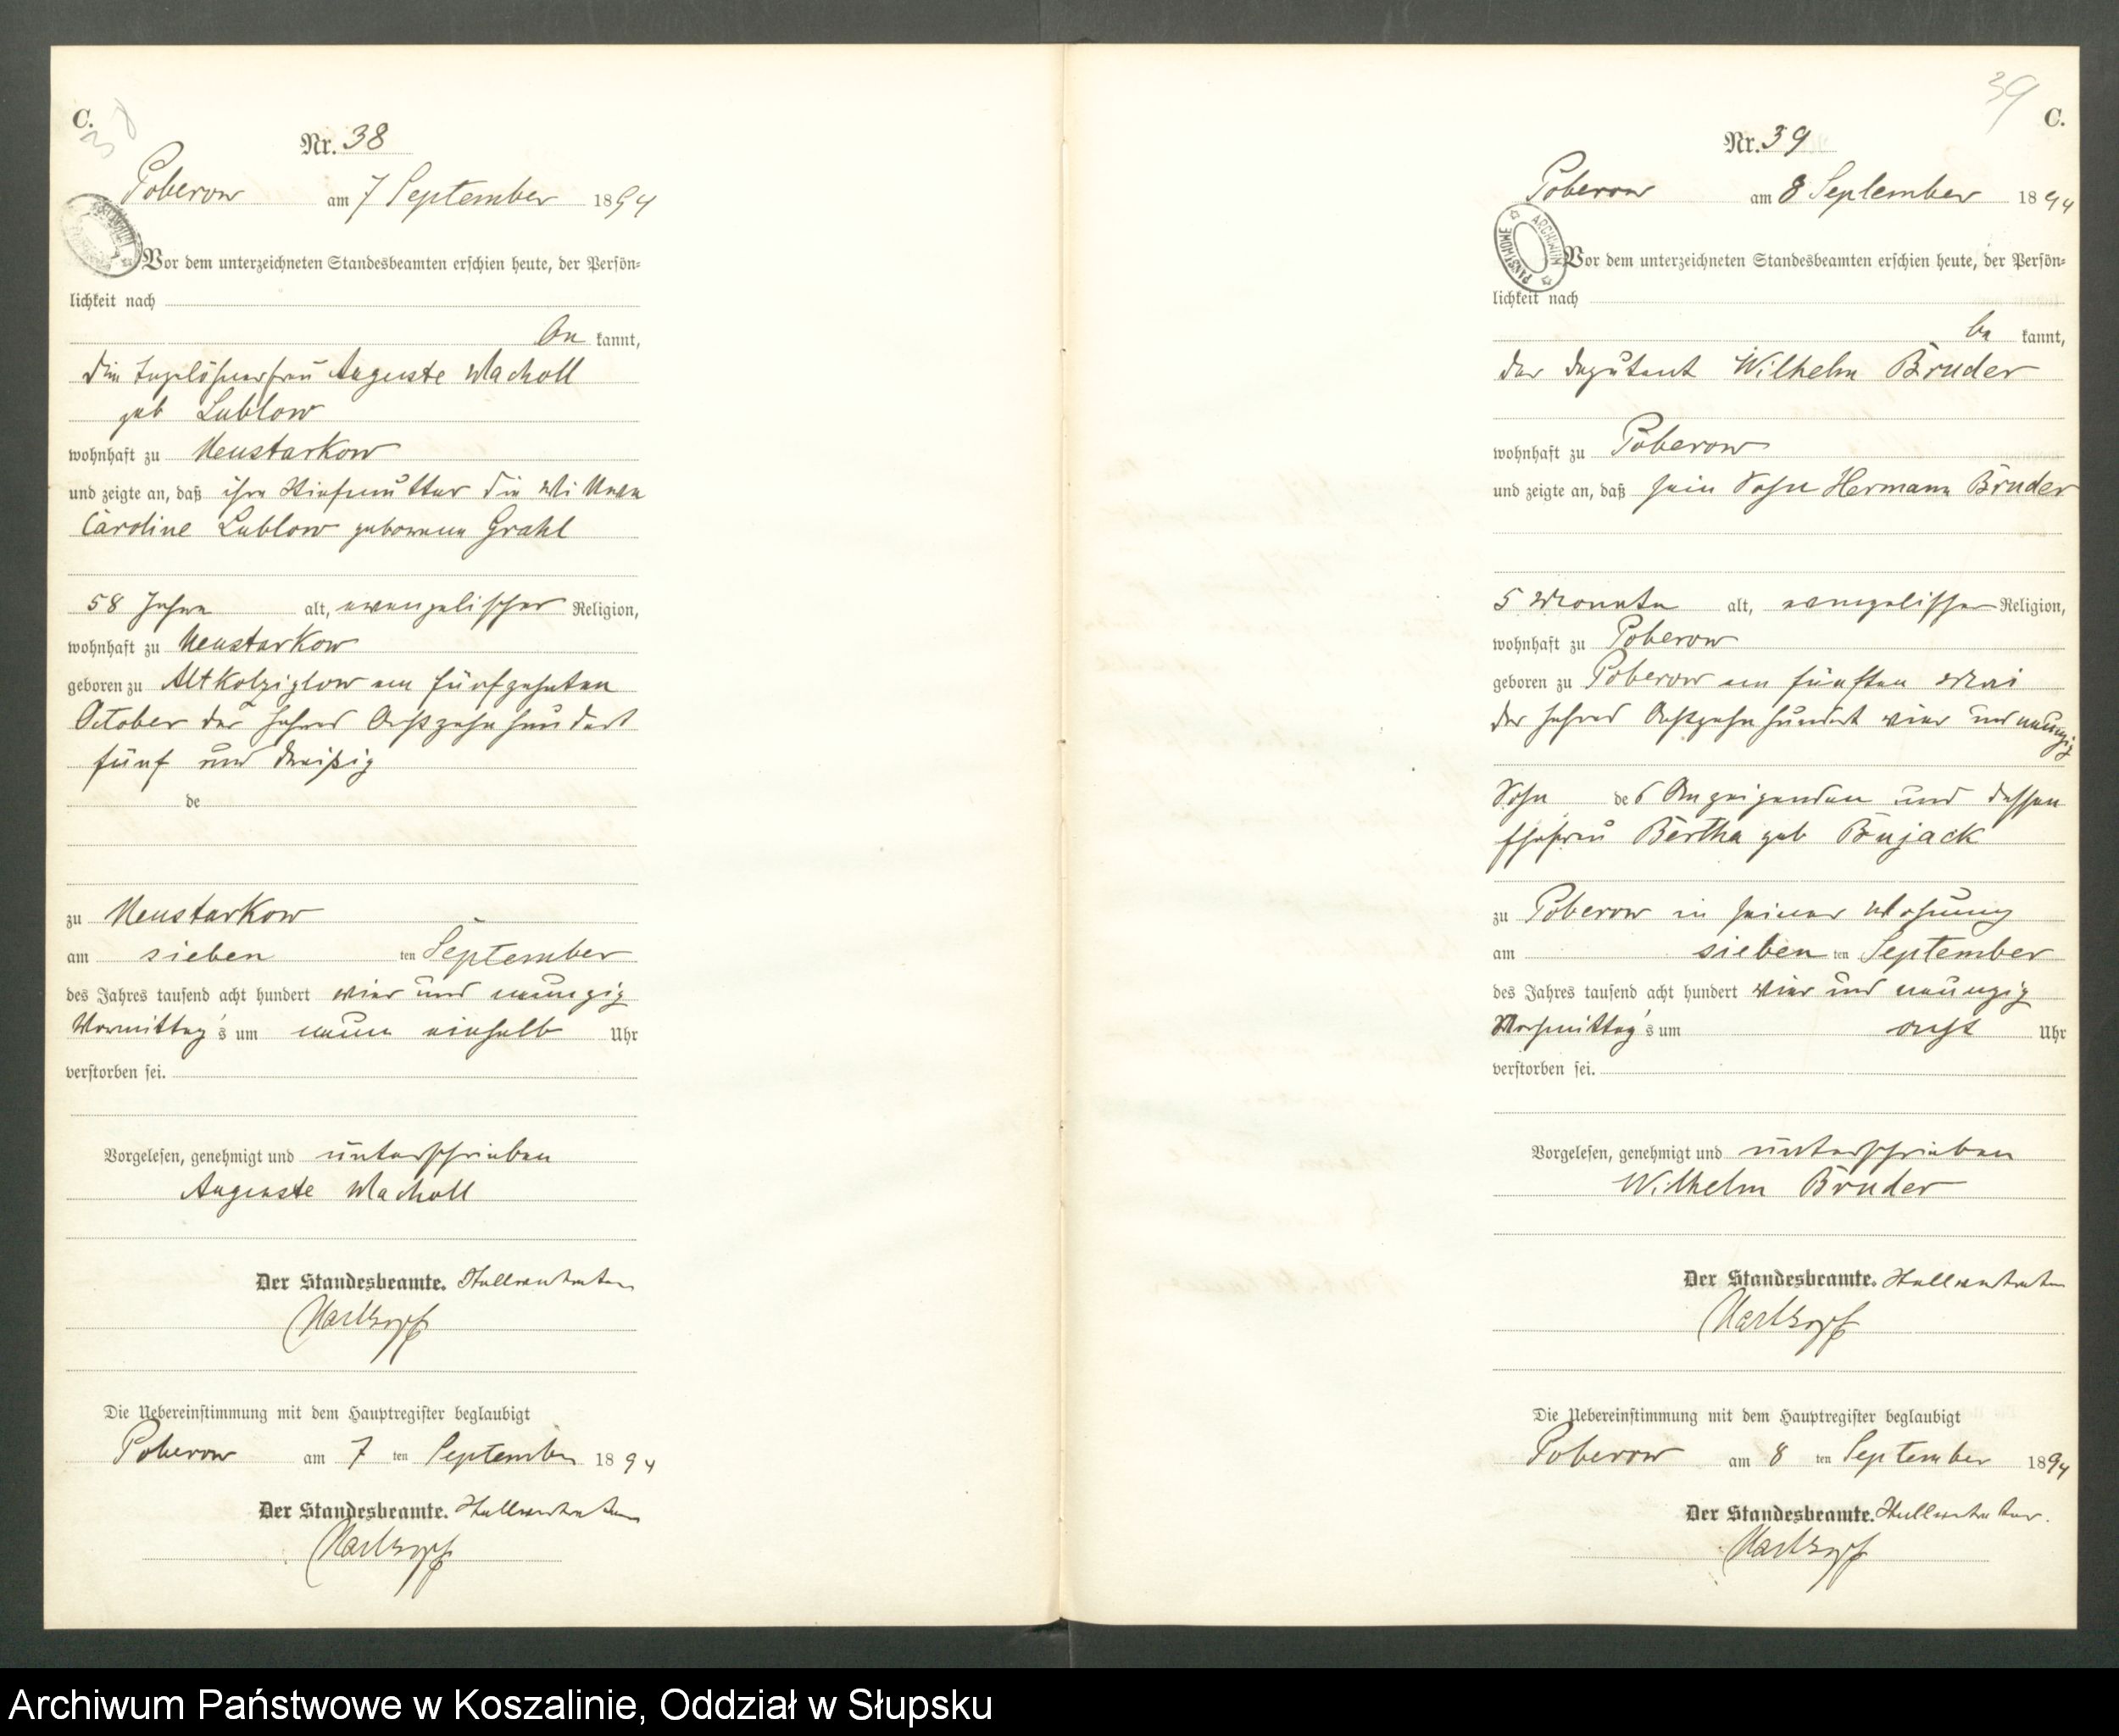 C.
38
Nr. 38
Poberow am 7 September 1894
Vor dem unterzeichneten Standesbeamten erschien heute, der Persön=
lichkeit nach
be kannt,
die Tagelöhnerfrau Auguste Macholl
geb Lublow
wohnhaft zu Neustarkow
und zeigte an, daß ihre Stiefmutter die Wittwe
Caroline Lublow geborene Grahl
58 Jahre alt, evangelischer Religion,
wohnhaft zu Neustarkow
geboren zu Alt Kolziglow am fünfzehnten
October des Jahres Achtzehnhundert
fünf und dreißig
de
zu Neustarkow
am sieben ten September
des Jahres tausend acht hundert vier und neunzig
Vormittag's um neun einhalb Uhr
verstorben sei.
Vorgelesen, genehmigt und unterschrieben
Auguste Macholl
Der Standesbeamte. Stellvertreter
Die Uebereinstimmung mit dem Hauptregister beglaubigt
Poberow am 7 ten September 1894
Der Standesbeamte. Stellvertreter
39
C.
Nr. 39
Poberow am 8 September 1894
ARCHIWUM PAŃSTWOWE
Vor dem unterzeichneten Standesbeamten erschien heute, der Persön=
lichkeit nach
be kannt,
der Deputant Wilhelm Bruder
wohnhaft zu Poberow
und zeigte an, daß sein Sohn Hermann Bruder
5 Monate alt, evangelischer Religion,
wohnhaft zu Poberow
geboren zu Poberow am fünften Mai
des Jahres Achtzehnhundert vier und neunzig
Sohn des Anzeigenden und dessen
Ehefrau Bertha geb Bujack
zu Poberow in seiner Wohnung
am sieben ten September
des Jahres tausend acht hundert vier und neunzig
Nachmittag's um acht Uhr
verstorben sei.
Vorgelesen, genehmigt und unterschrieben
Wilhelm Bruder
Der Standesbeamte. Stellvertreter
Die Uebereinstimmung mit dem Hauptregister beglaubigt
Poberow am 8 ten September 1894
Der Standesbeamte. Stellvertreter.
Archiwum Państwowe w Koszalinie, Oddział w Słupsku